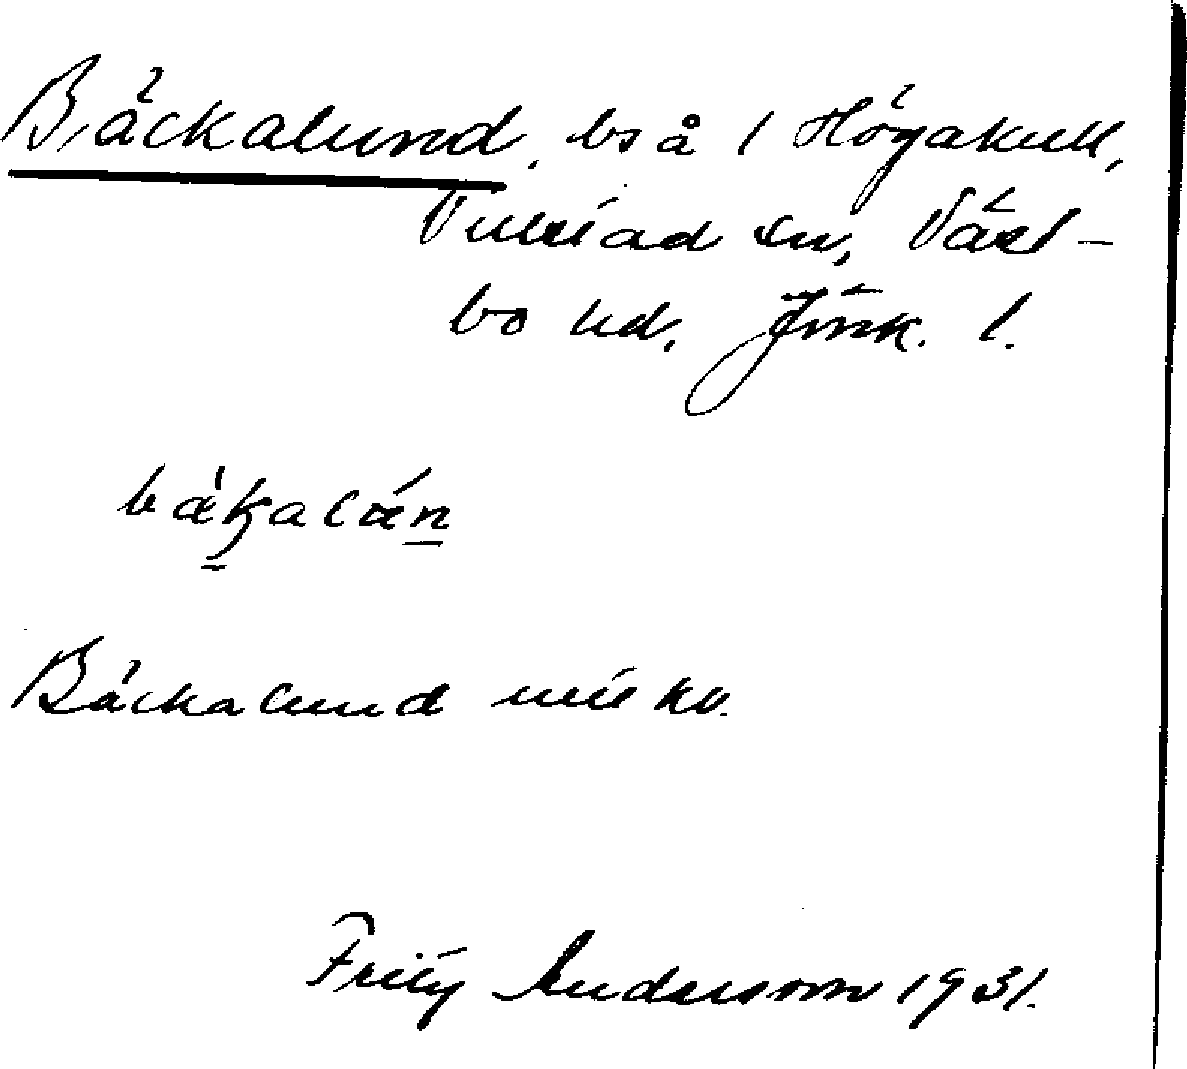 Bäckalund, bs å 1 Högakull,
Villstad sn, Väst-
bo hd, Jönk. l.
bàkalún
Bäckalund msk kv.
Fritz Andersson 1931.